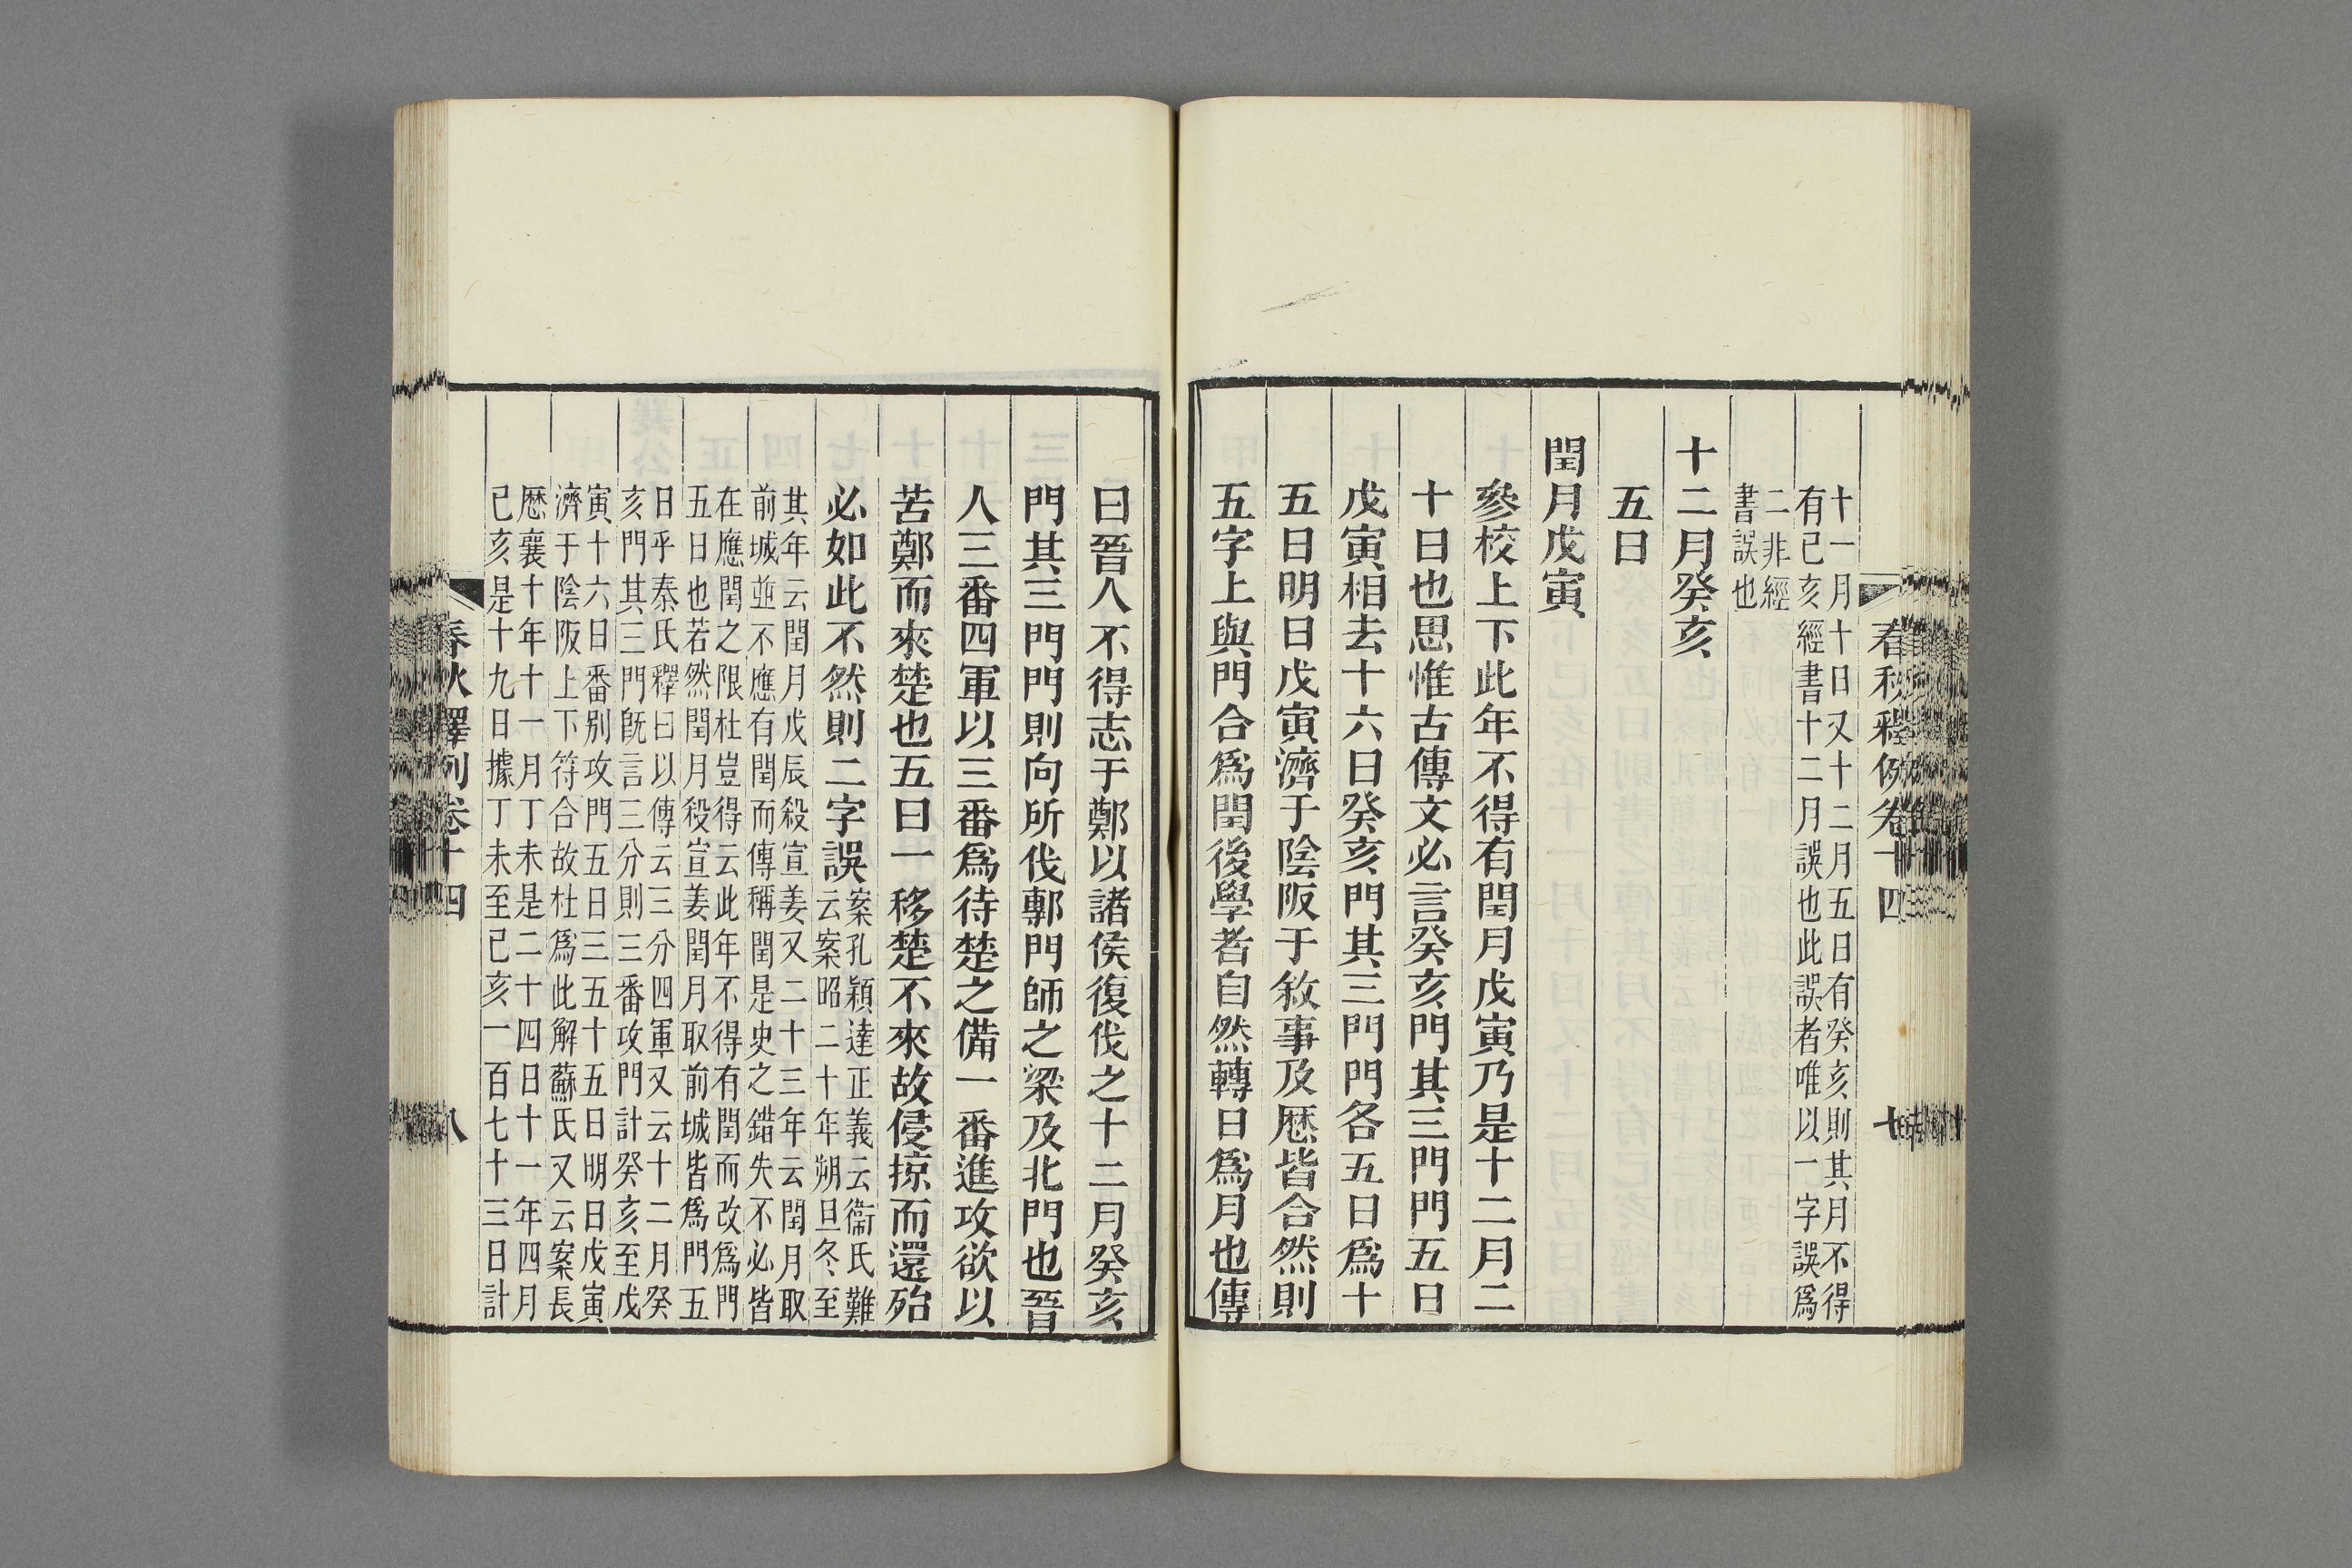 春秋釋例卷十四
七
十一月十日又十二月五日有癸亥則其月不得
有己亥經書十二月誤也此誤者唯以一字誤爲
二非經
書誤也
十二月癸亥
五日
閏月戊寅
參校上下此年不得有閏月戊寅乃是十二月二
十日也思惟古傳文必言癸亥門其三門門五日
戊寅相去十六日癸亥門其三門門各五日爲十
五日明日戊寅濟于陰阪于敘事及厯皆合然則
五字上與門合爲閏後學者自然轉日爲月也傳
曰晉人不得志于鄭以諸侯復伐之十二月癸亥
門其三門門則向所伐鄟門師之梁及北門也晉
人三番四軍以三番爲待楚之備一番進攻欲以
苦鄭而來楚也五日一移楚不來故侵掠而還殆
必如此不然則二字誤
案孔穎達正義云衞氏難
云案昭二十年朔旦冬至
其年云閏月戊辰殺宣姜又二十三年云閏月取
前城並不應有閏而傳稱閏是史之錯失不必皆
在應閏之限杜豈得云此年不得有閏而改爲門
五日也若然閏月殺宣姜閏月取前城皆爲門五
日乎秦氏釋曰以傳云三分四軍又云十二月癸
亥門其三門旣言三分則三番攻門計癸亥至戊
寅十六日番别攻門五日三五十五日明日戊寅
濟于陰阪上下符合故杜爲此解蘇氏又云案長
厯襄十年十一月丁未是二十四日十一年四月
己亥是十九日據丁未至己亥一百七十三日計
春秋釋例卷十四
八